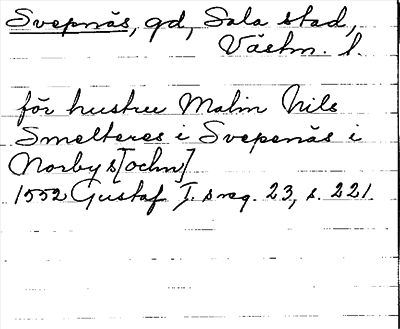 Svepnäs, gd, Sala stad,
Västm. l.
för hustru Malin Nils
Smelteres i Svepenäs i
Norby s[ochn]
1552 Gustaf I. s reg. 23, s. 221.